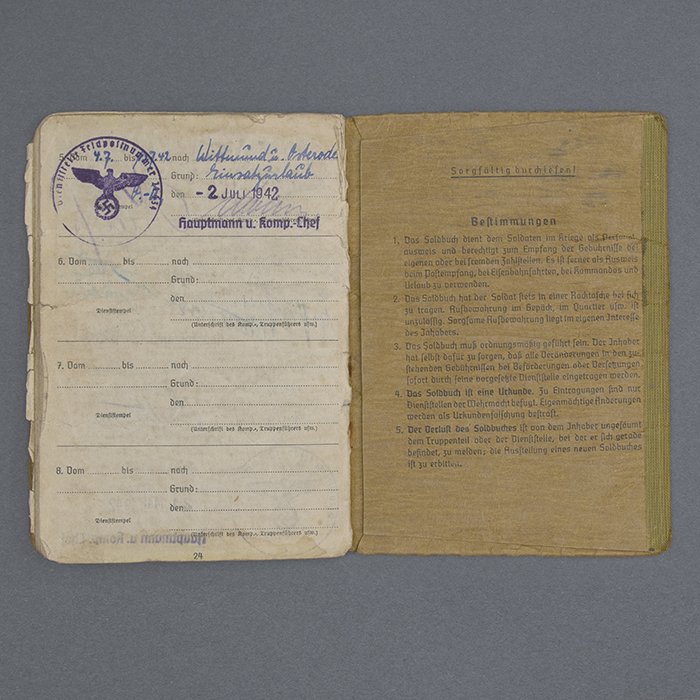 5. Vom 4.7. bis 42 nach Wittmund u. Osterode
Grund: Einsatzurlaub
Dienststelle Feldpostnummer
den - 2 JULI 1942
Hauptmann u. Komp.-Chef
6. Vom bis nach
Grund:
den
Dienststempel
(Unterschrift des Komp., Truppenführers usw.)
7. Vom bis nach
Grund:
den
Dienststempel
(Unterschrift des Komp., Truppenführers usw.)
8. Vom bis nach
Grund:
den
Dienststempel
(Unterschrift des Komp., Truppenführers usw.)
24
Sorgfältig durchlesen!
Bestimmungen
1. Das Soldbuch dient dem Soldaten im Kriege als Personal-
ausweis und berechtigt zum Empfang der Gebührnisse bei
eigenen oder bei fremden Zahlstellen. Es ist ferner als Ausweis
beim Postempfang, bei Eisenbahnfahrten, bei Kommandos und
Urlaub zu verwenden.
2. Das Soldbuch hat der Soldat stets in einer Rocktasche bei sich
zu tragen. Aufbewahrung im Gepäck, im Quartier usw. ist
unzulässig. Sorgsame Aufbewahrung liegt im eigenen Interesse
des Inhabers.
3. Das Soldbuch muß ordnungsmäßig geführt sein. Der Inhaber
hat selbst dafür zu sorgen, daß alle Veränderungen in den zu-
stehenden Gebührnissen bei Beförderungen oder Versetzungen
sofort durch seine vorgesetzte Dienststelle eingetragen werden.
4. Das Soldbuch ist eine Urkunde. Zu Eintragungen sind nur
Dienststellen der Wehrmacht befugt. Eigenmächtige Änderungen
werden als Urkundenfälschung bestraft.
5. Der Verlust des Soldbuches ist von dem Inhaber ungesäumt
dem Truppenteil oder der Dienststelle, bei der er sich gerade
befindet, zu melden; die Ausstellung eines neuen Soldbuches
ist zu erbitten.